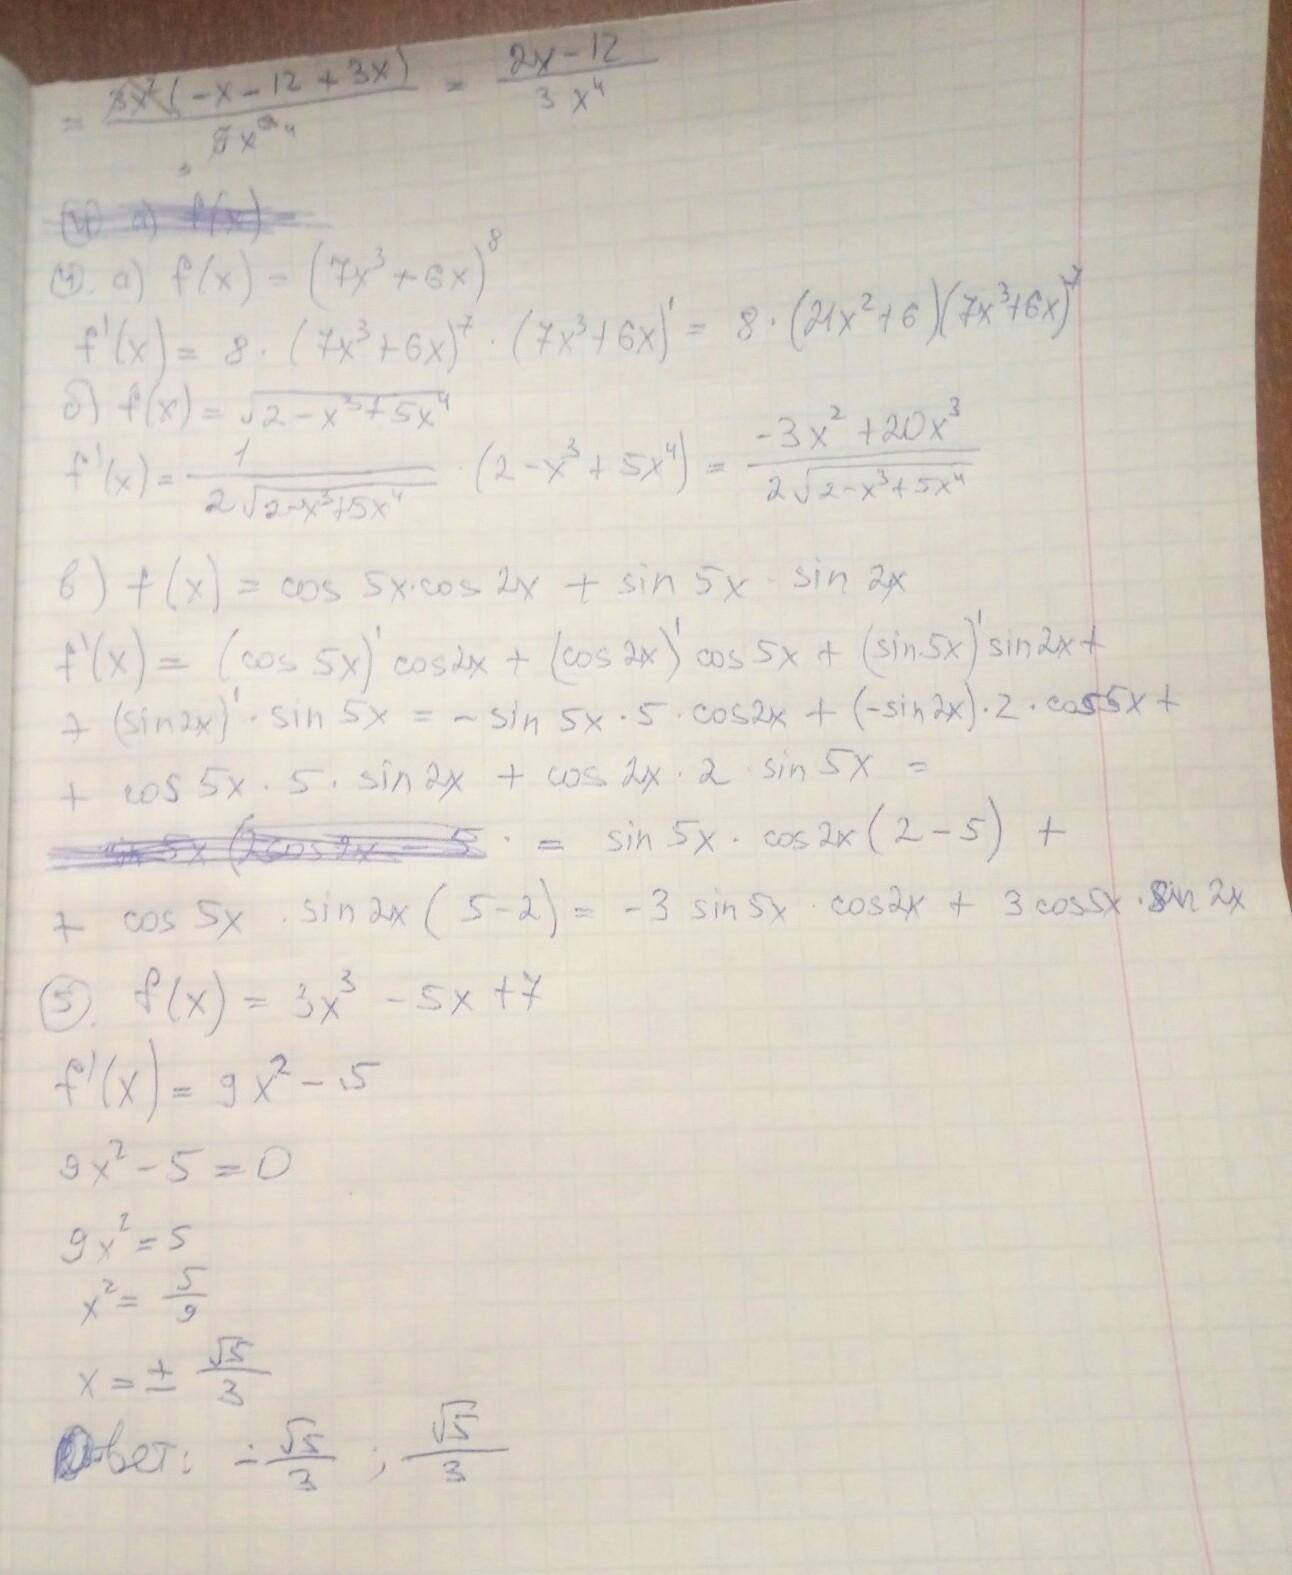 = 3x²(-x-12+3x) / 9x⁶ ⁴ ₃ = 2x-12 / 3x⁴
4 а) f(x) =
4. а) f(x) = (7x³+6x)⁸
f'(x) = 8·(7x³+6x)⁷·(7x³+6x)' = 8·(21x²+6)(7x³+6x)⁷
б) f(x) = √(2-x³+5x⁴)
f'(x) = 1 / 2√(2-x³+5x⁴) · (2-x³+5x⁴) = -3x²+20x³ / 2√(2-x³+5x⁴)
в) f(x) = cos 5x·cos 2x + sin 5x · sin 2x
f'(x) = (cos 5x)' cos2x + (cos 2x)' cos 5x + (sin5x)' sin2x+
+ (sin2x)'· sin 5x = -sin 5x·5·cos2x + (-sin2x)·2·cos5x+
+ cos 5x · 5 · sin 2x + cos 2x · 2 · sin 5x =
sin 5x (2cos 2x - 5 · = sin 5x · cos 2x (2-5) +
+ cos 5x · sin 2x (5-2) = -3 sin 5x · cos2x + 3 cos5x · sin 2x
5. f(x) = 3x³ - 5x +7
f'(x) = 9x² - 5
9x² - 5 = 0
9x² = 5
x² = 5/9
x = ± √5/3
Ответ: -√5/3 ; √5/3